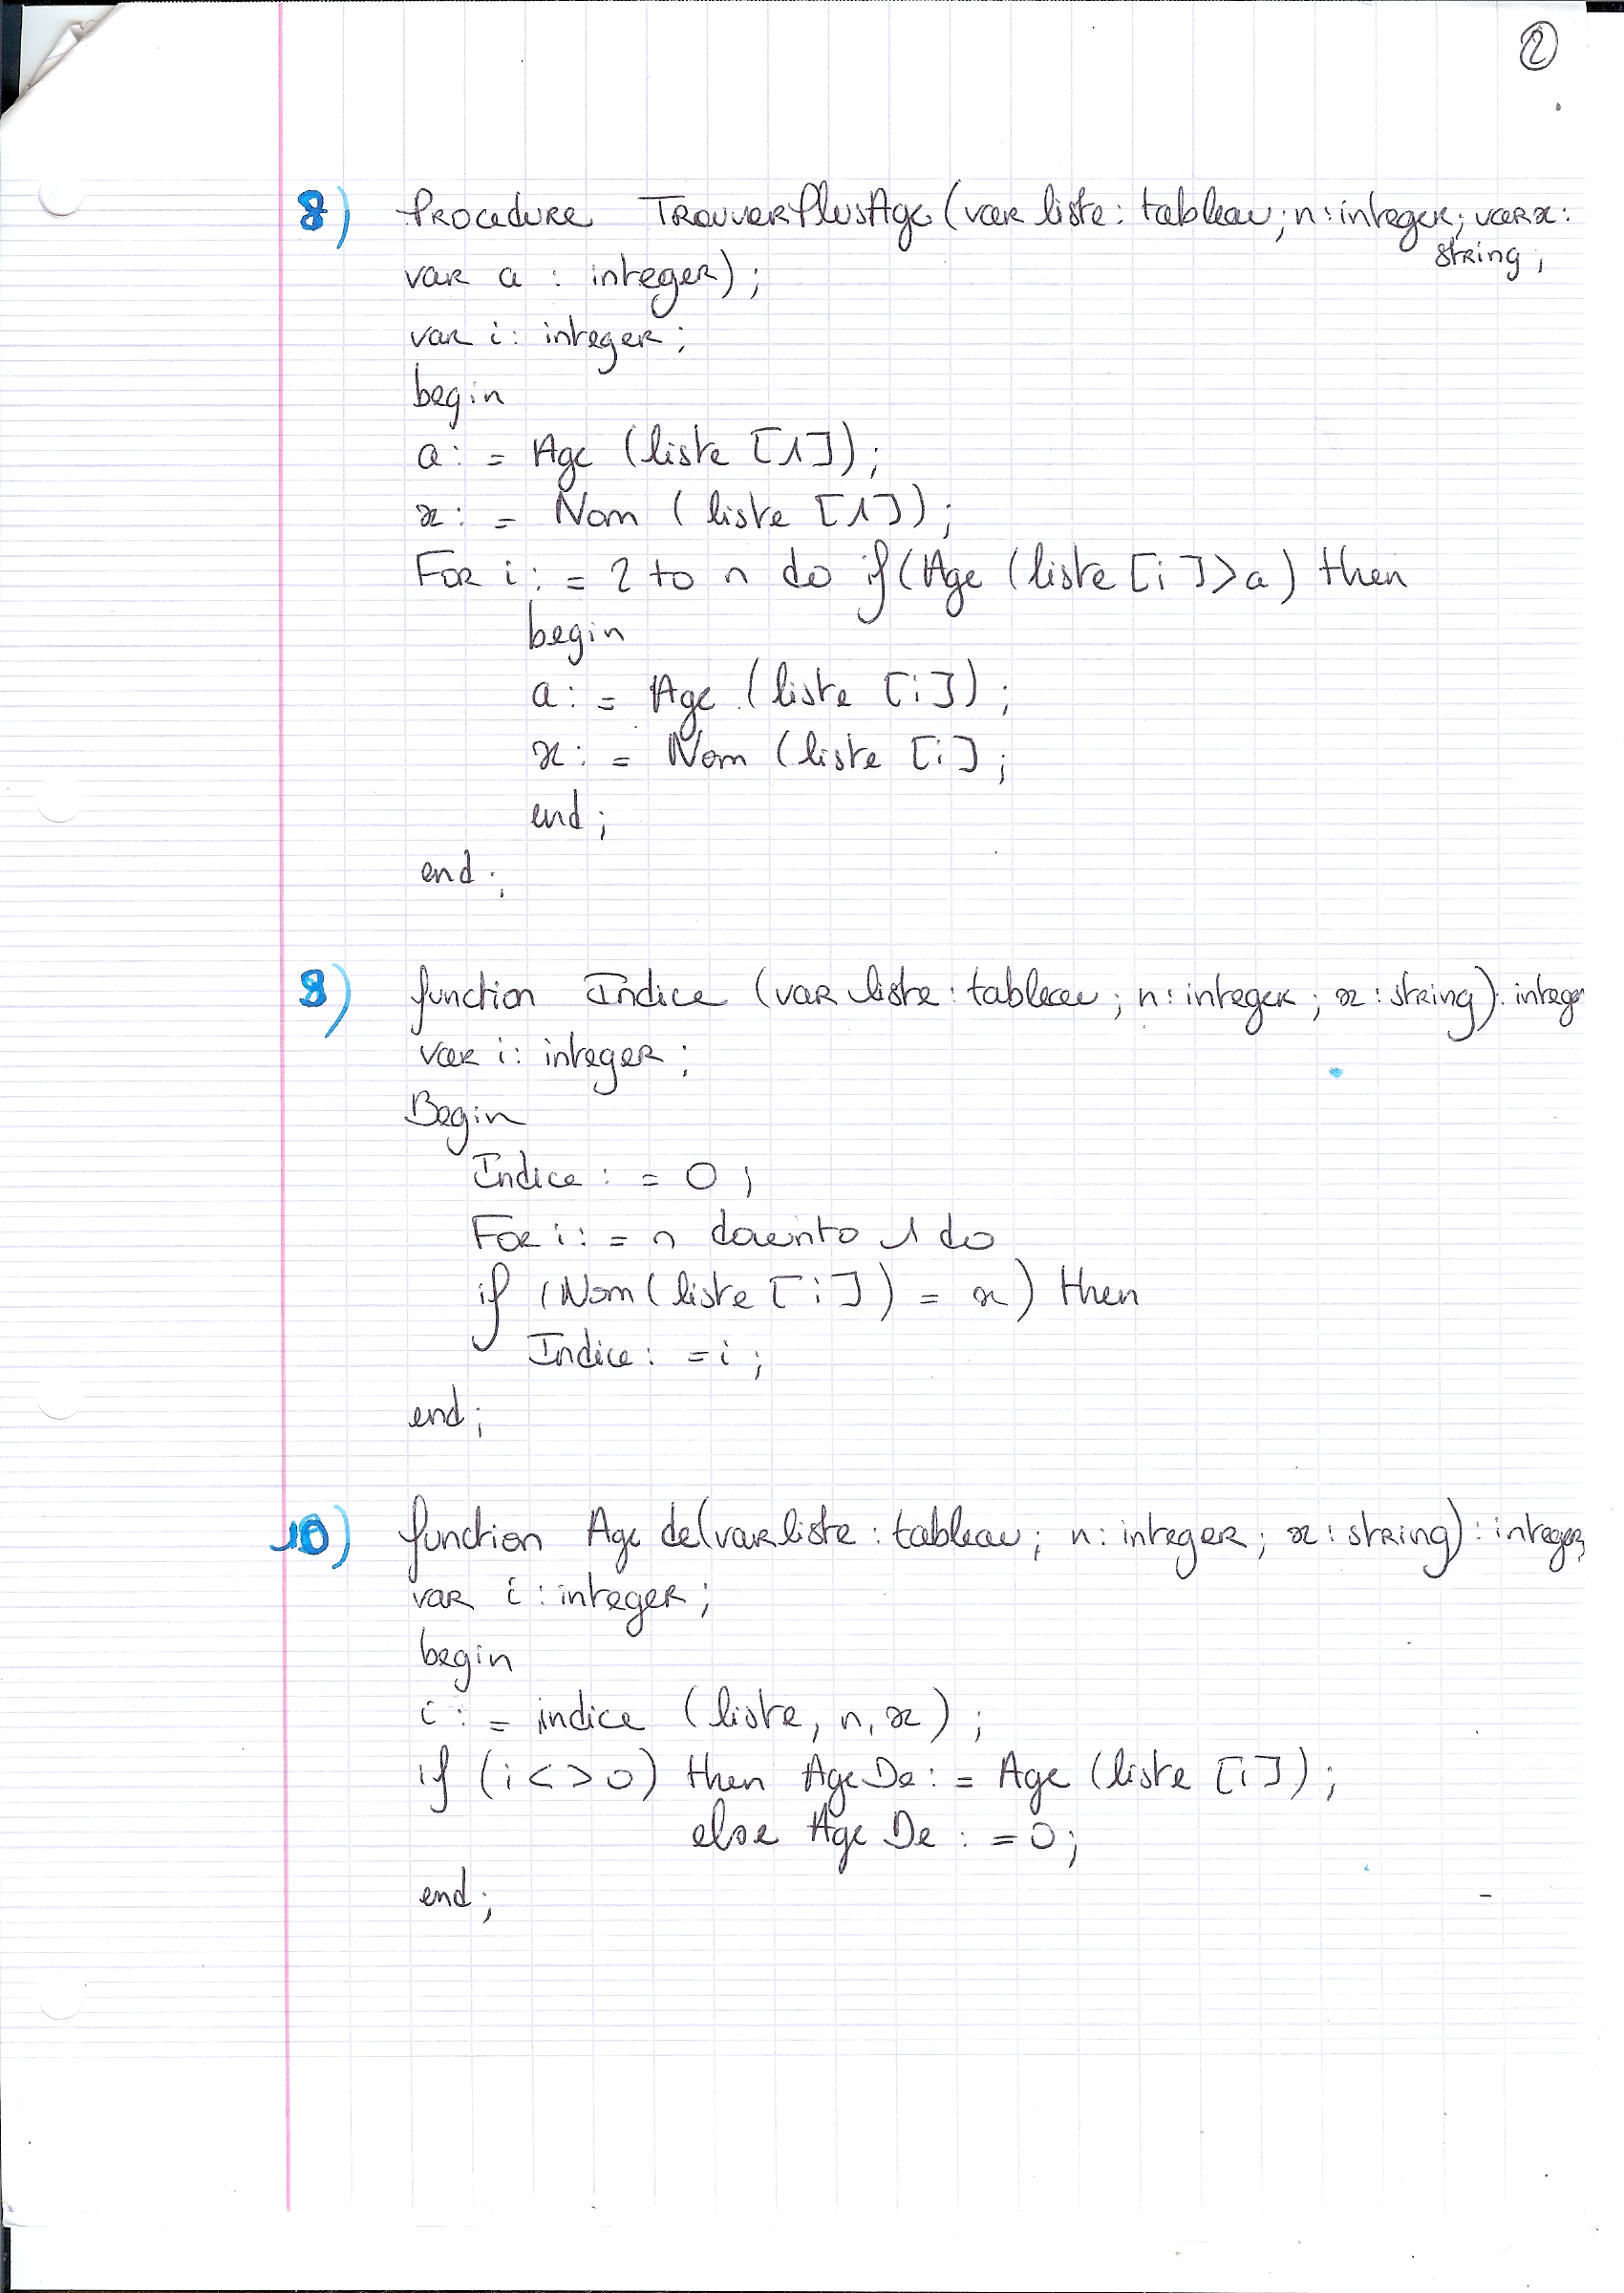 2
8) Procedure TrouverPlusAge (var liste : tableau ; n : integer ; var x :
string ;
var a : integer) ;
var i : integer ;
begin
a := Age (liste [1]) ;
x := Nom (liste [1]) ;
For i := 2 to n do if (Age (liste [i] > a) then
begin
a := Age (liste [i]) ;
x := Nom (liste [i] ;
end ;
end ;
9) function Indice (var liste : tableau ; n : integer ; x : string) : integer
var i : integer ;
Begin
Indice := 0 ;
For i := n downto 1 do
if (Nom (liste [i]) = x) then
Indice := i ;
end ;
10) function Age de (var liste : tableau ; n : integer ; x : string) : integer,
var i : integer ;
begin
i := indice (liste, n, x) ;
if (i <> 0) then AgeDe := Age (liste [i]) ;
else AgeDe := 0 ;
end ;